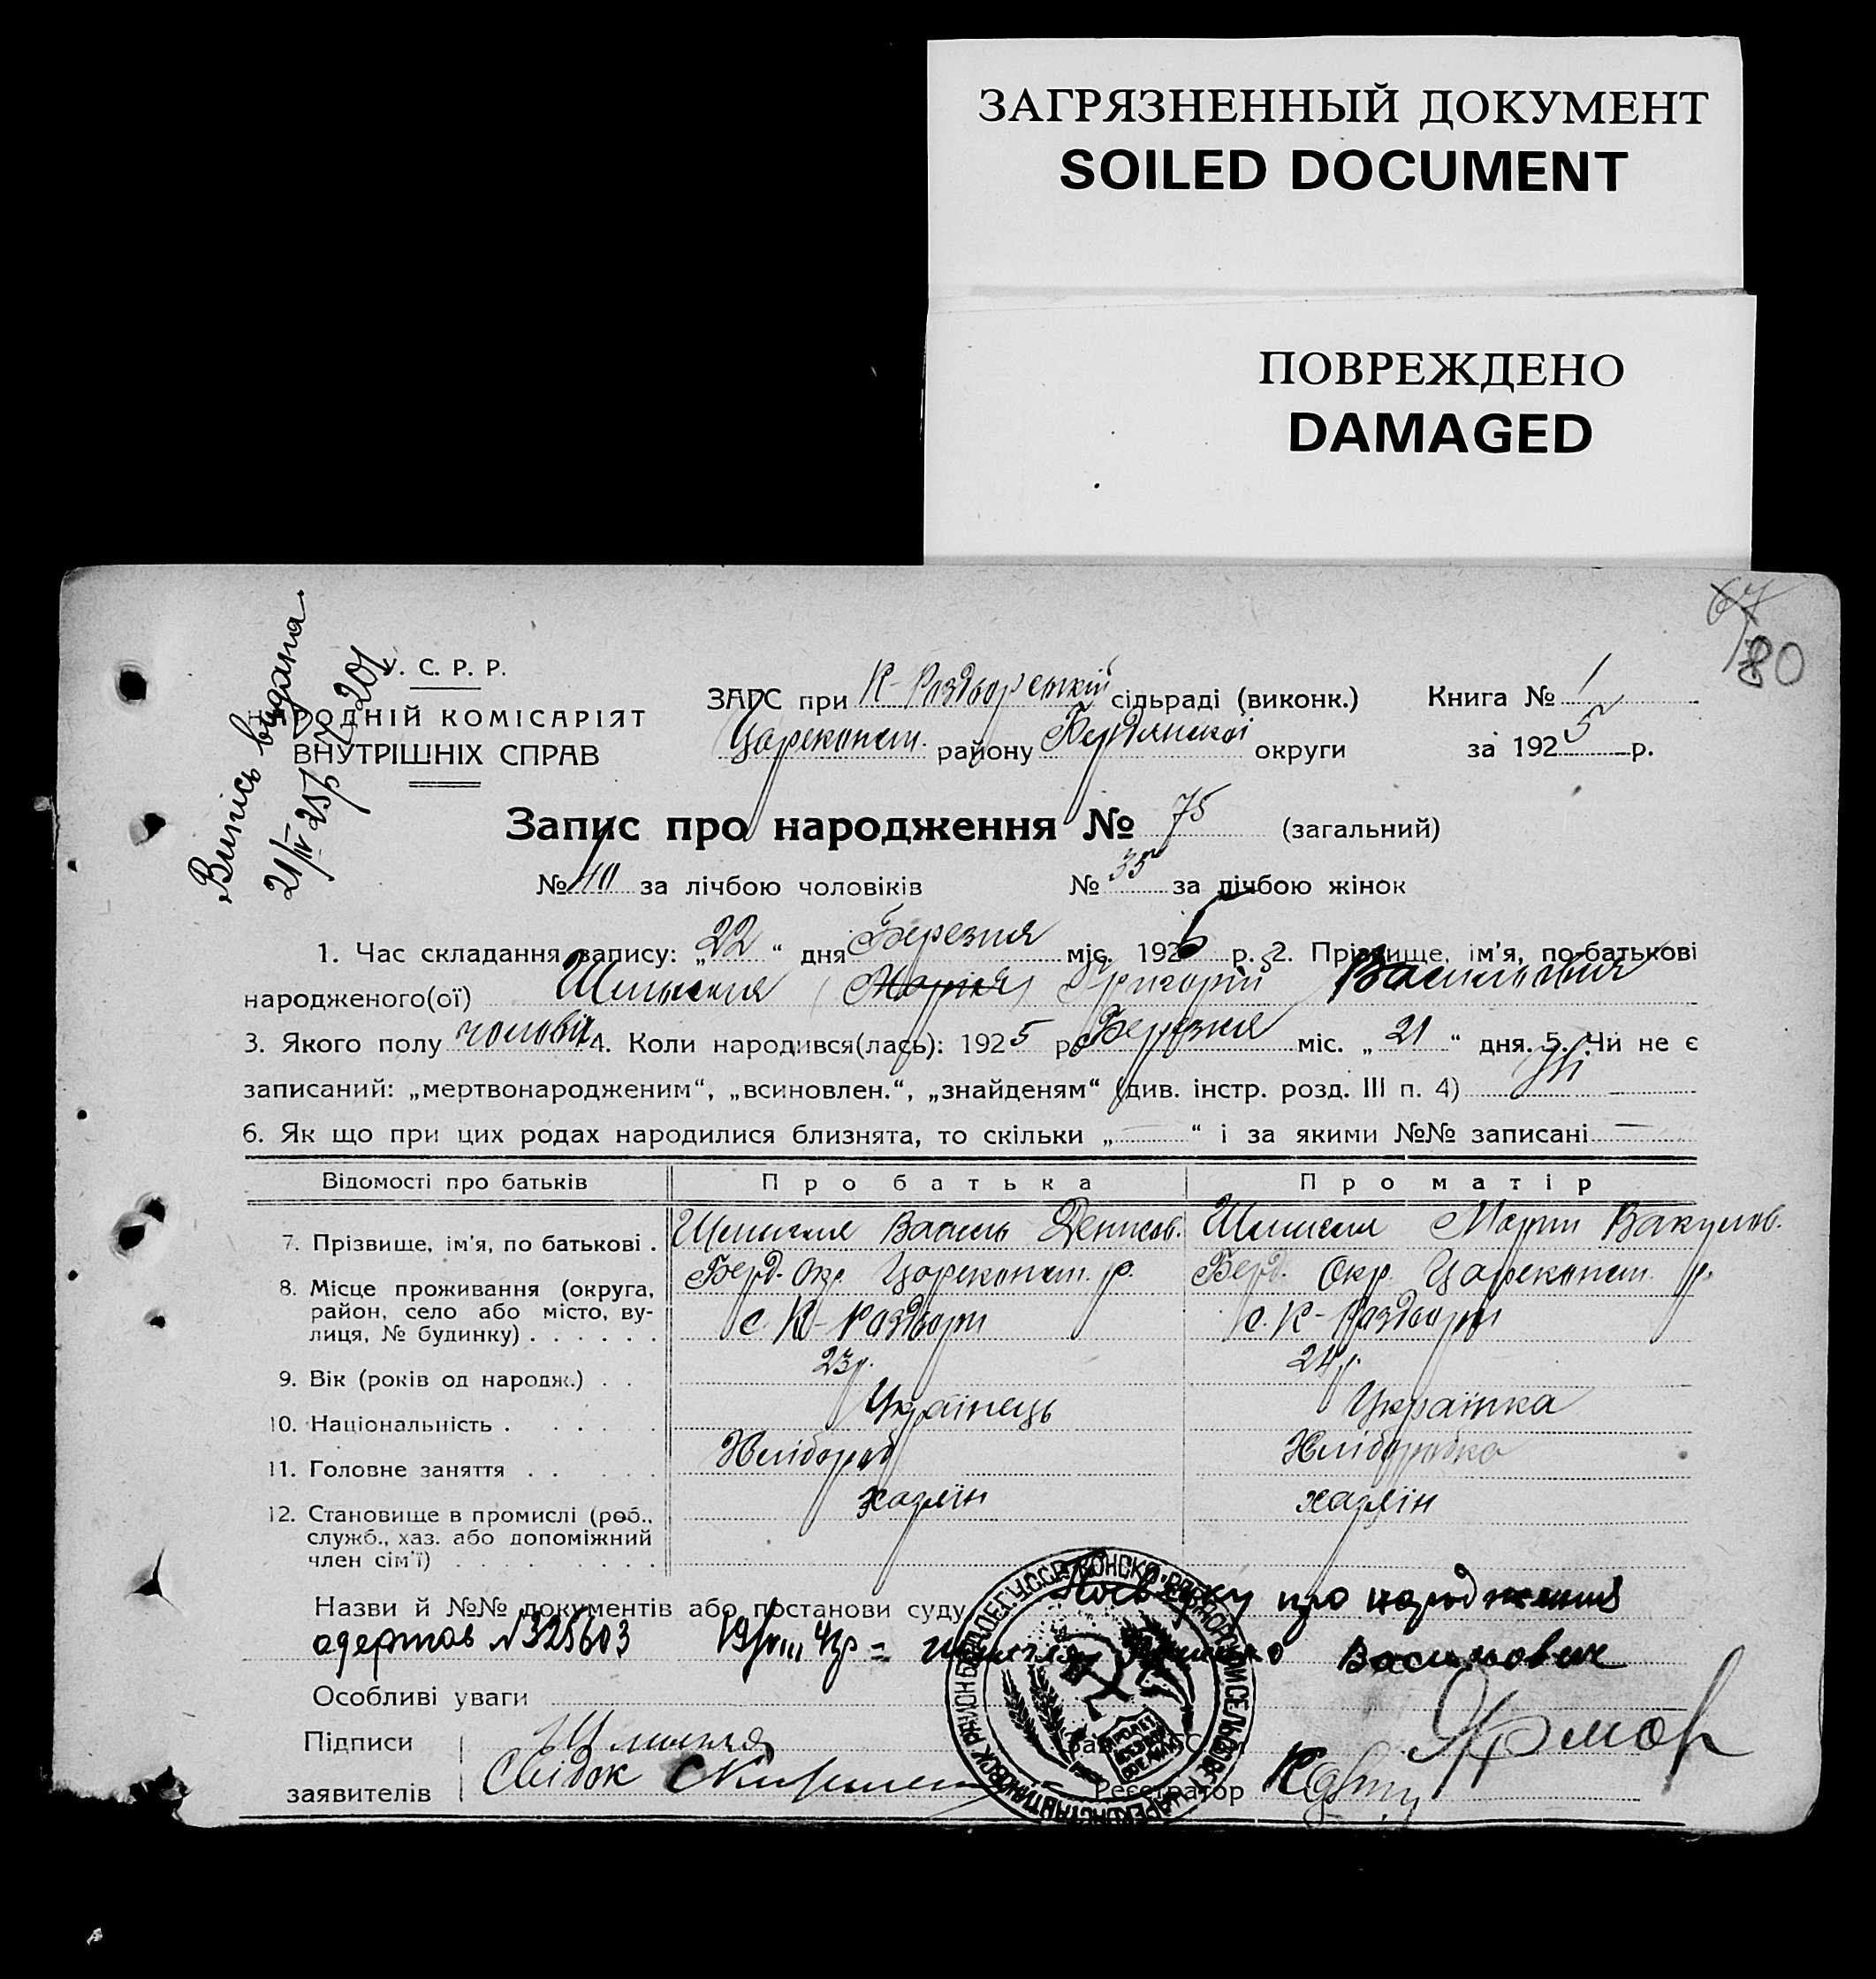 ЗАГРЯЗНЕННЫЙ ДОКУМЕНТ
SOILED DOCUMENT
ПОВРЕЖДЕНО
DAMAGED
67
80
Випись видана
21/IV 25р
У. С. Р. Р.
НАРОДНІЙ КОМІСАРІЯТ
ВНУТРІШНІХ СПРАВ
ЗАГС при К-Раздорській сільраді (виконк.) Книга № 1
Цареконст. району Бердянської округи за 1925 р.
Запис про народження № 75 (загальний)
№ 40 за лічбою чоловіків № 35 за лічбою жінок
1. Час складання запису: „22“ дня Березня міс. 1925 р. 2. Прізвище, ім'я, по-батькові
народженого(ої) (Марія) Григорій
3. Якого полу чоловік 4. Коли народився(лась): 1925 р Березня міс. „21“ дня. 5. Чи не є
записаний: „мертвонародженим“, „всиновлен.“, „знайденям“ (див. інстр. розд. III п. 4) Ні
6. Як що при цих родах народилися близнята, то скільки „—“ і за якими №№ записані —
Відомості про батьків Про батька Про матір
7. Прізвище, ім'я, по батькові . Василь Денисов. Марія Вакулов.
8. Місце проживання (округа, район, село або місто, вулиця, № будинку) . . . . . . Берд. Окр. Цареконст. р. Берд. Окр. Цареконст. р.
с. К-Раздори с. К-Раздори
9. Вік (років од народж.) . . 23р. 24р.
10. Національність . . . . . Українець Українка
11. Головне заняття . . . . . Хлібороб Хліборобка
12. Становище в промислі (роб., служб., хаз. або допоміжний член сім'ї) . . . . . . . . хазяїн хазяїн
Назви й №№ документів або постанови суду про народження
одержав № 325603 Василович
Особливі уваги
Підписи
заявителів Свідок
Реєстратор